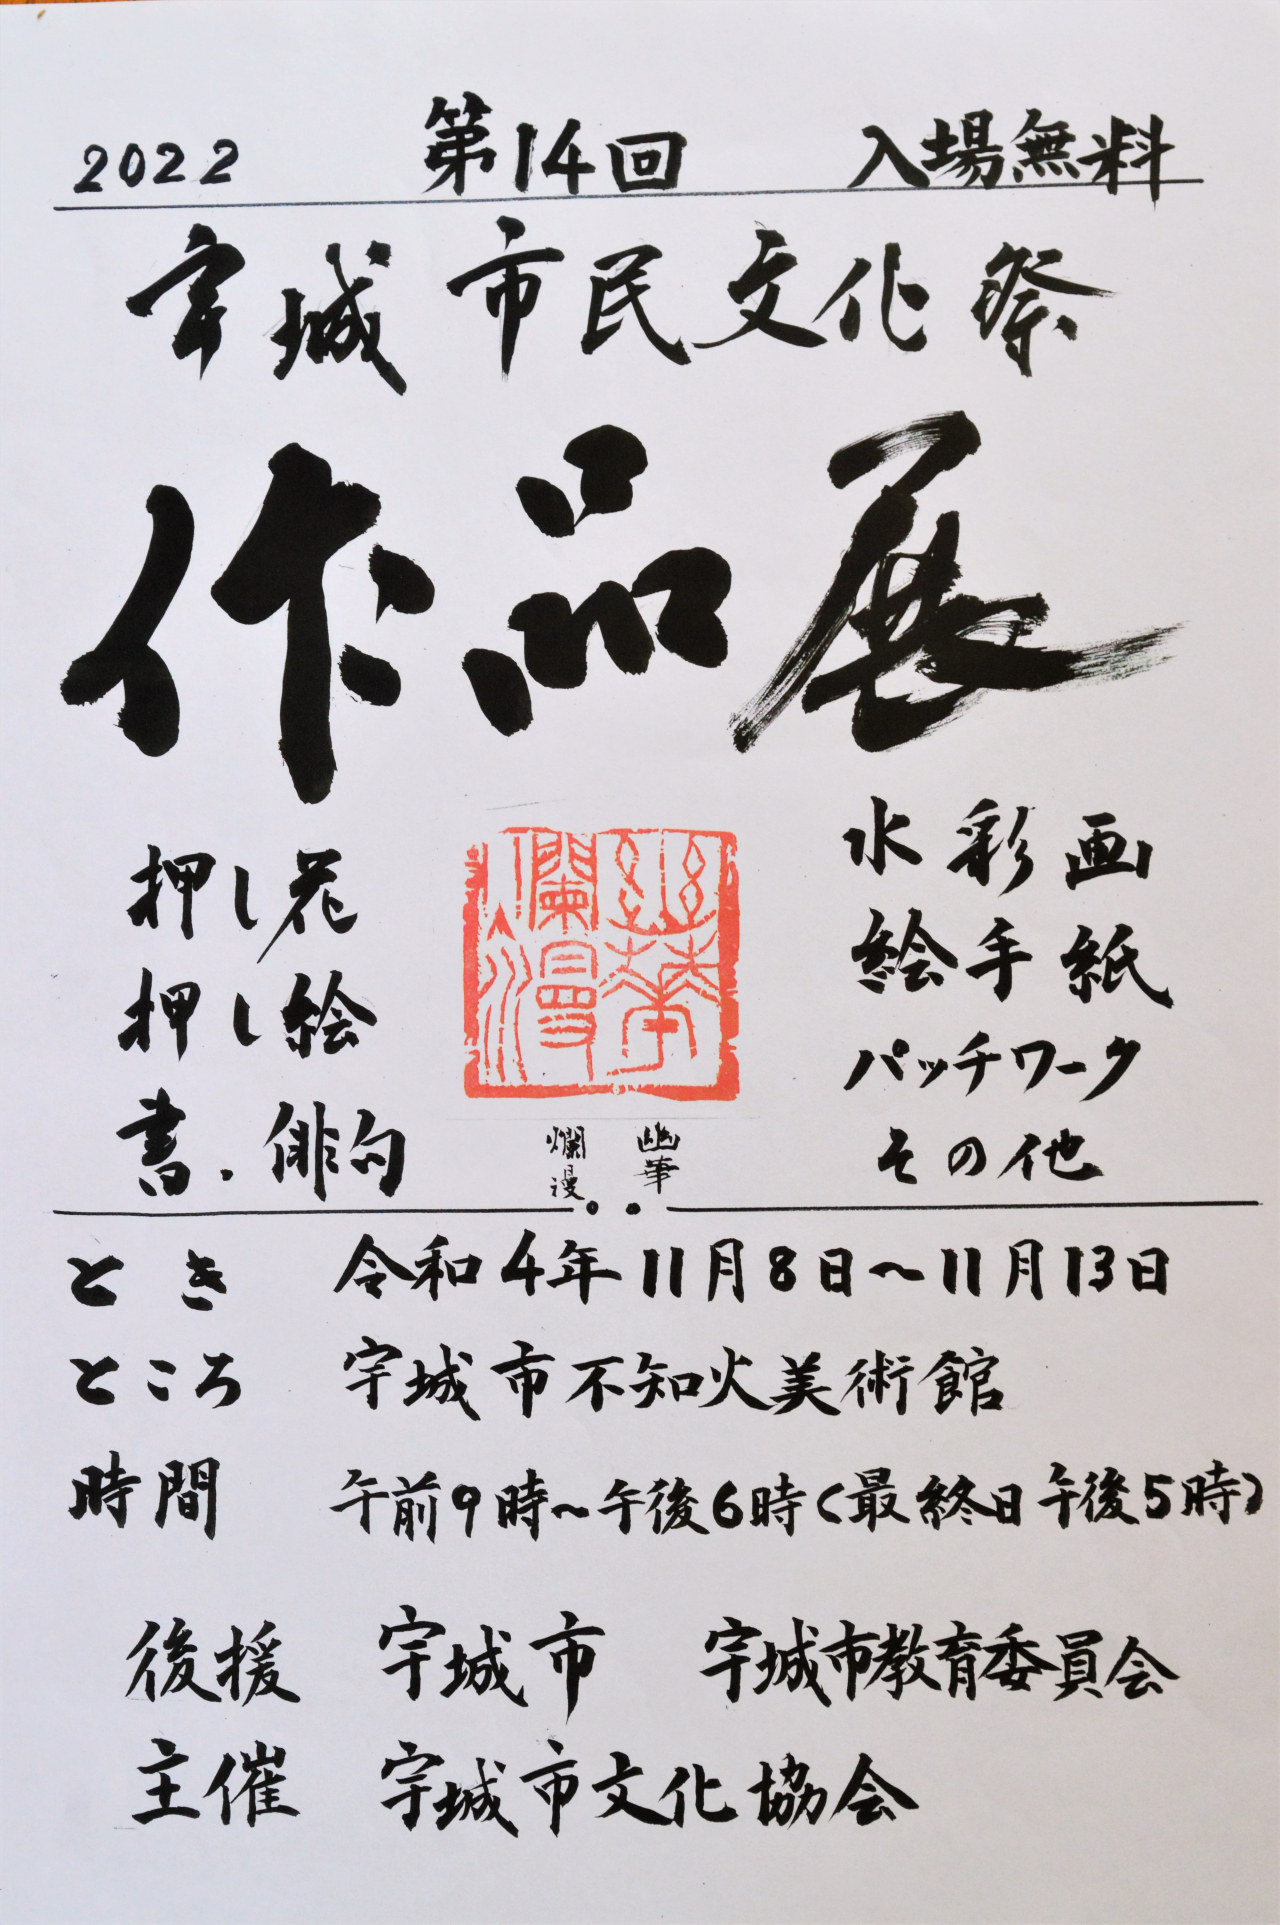 2022 第14回 入場無料
宇城市民文化祭
作品展
押し花
押し絵
書．俳句
幽華
爛漫
幽華
爛漫
水彩画
絵手紙
パッチワーク
その他
とき 令和4年11月8日～11月13日
ところ 宇城市不知火美術館
時間 午前9時～午後6時（最終日午後5時）
後援 宇城市 宇城市教育委員会
主催 宇城市文化協会